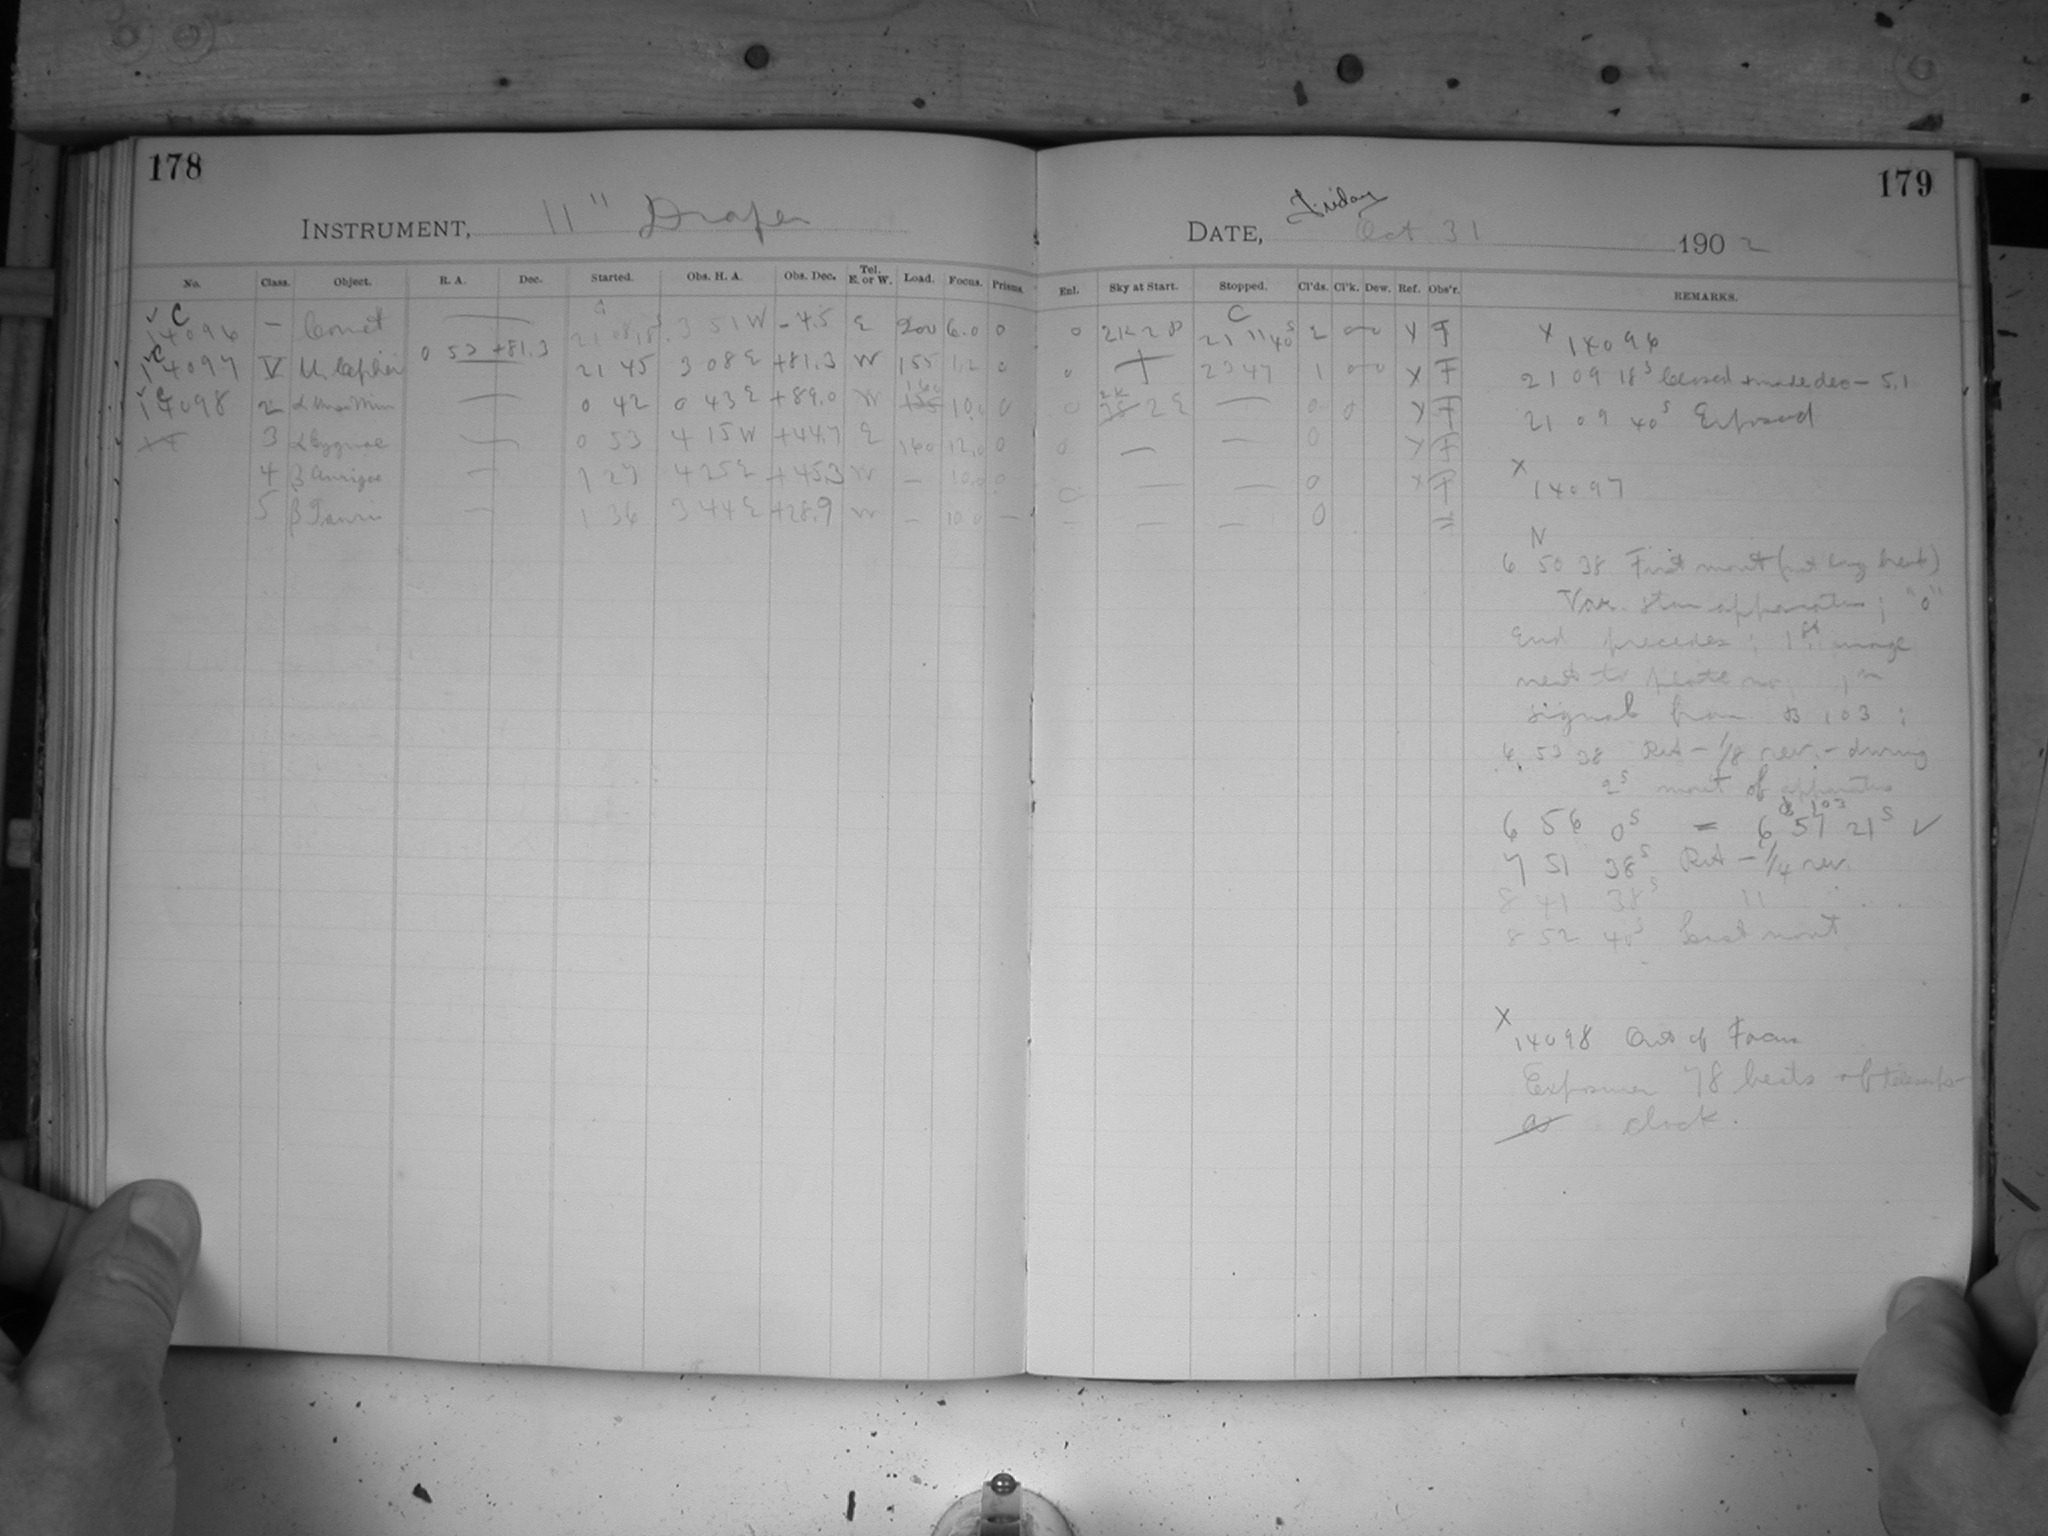 178
INSTRUMENT, 11" Draper
No. Class. Object. R. A. Dec. Started. Obs. H. A. Obs. Dec. Tel. E. or W. Load. Focus. Prisms.
C
14096 — Comet — 21 08 18s 3 51 W - 4.5 E 200 6.0 0
C 14097 V U Cephei 0 53 +81.3 21 45 3 08 E +81.3 W 155 1.2 0
C 14098 2 α Urs Min — 0 42 0 43 E +89.0 W 160 10.0 0
3 α Cygnae — 0 53 4 15 W +44.7 E 160 12.0 0
4 β Aurigae — 1 27 4 25 E +45.3 W — 10.0 0
5 β Tauri — 1 36 3 44 E +28.9 W — 10.0 —
179
DATE, Friday Oct 31 1902
Enl. Sky at Start. Stopped. Cl'ds. Cl'k. Dew. Ref. Obs'r. REMARKS.
C
0 21 11 40s 2 Y F
0 23 47 1 X F
0 2 E — 0 0 Y F
0 — — 0 Y F
0 — — 0 X F
— — — 0 =
X 14096
21 09 18s Closed + made dec - 5.1
21 09 40s Exposed
X
14097
N
6 50 38 First mont (not long beat)
Var. star apparatus; "0"
End precedes; 1st image
next to plate no;
signal from B 103;
6 53 38 RA - 1/8 rev. - during
2s mont of apparatus
B 103
6 56 0s = 6 57 21s ✓
7 51 38s RA - 1/4 rev.
8 41 38s 11
8 52 40s Last mont
X
14098 Out of Focus
Exposures 78 beats of telescope
clock.